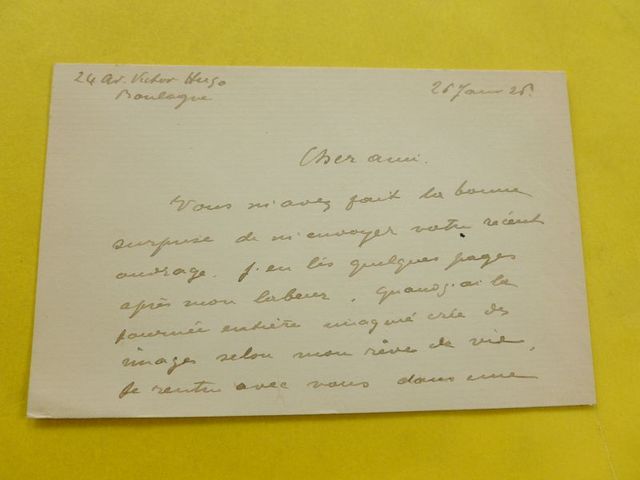 24 Av. Victor Hugo
Boulogne
26 Janv 26.
Cher ami.
Vous m'avez fait la bonne
surprise de m'envoyer votre récent
ouvrage. J'en lis quelques pages
après mon labeur. Quand j'ai la
journée entière crée des
images selon mon rêve de vie,
Je rentre avec vous dans une